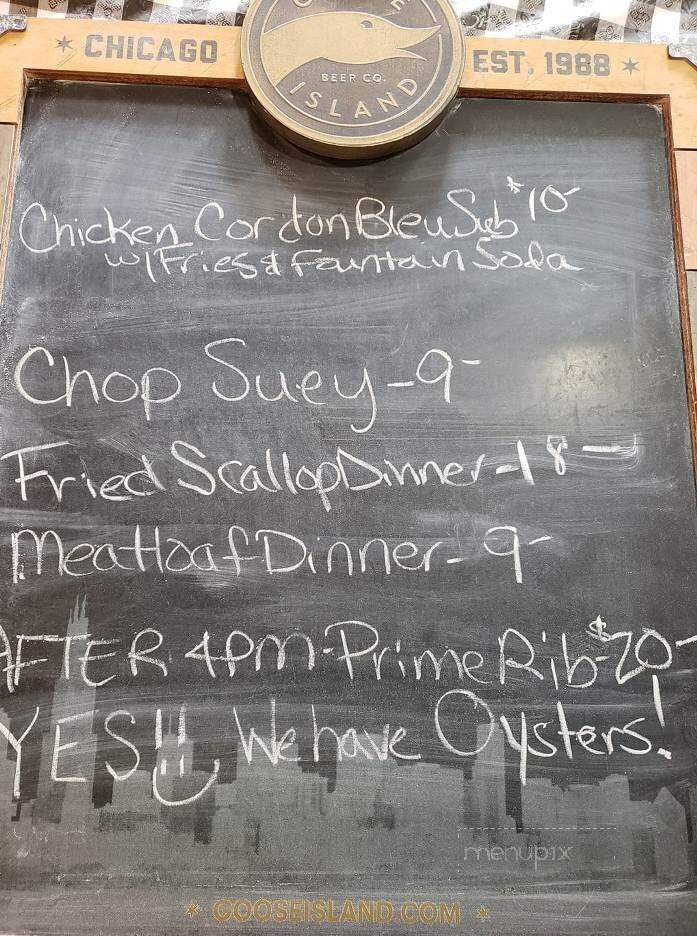 CHICAGO
BEER CO.
ISLAND
EST. 1988
Chicken Cordon Bleu Sub $10-
w/ Fries & Fountain Soda
Chop Suey - 9-
Fried Scallop Dinner - 18-
Meatloaf Dinner - 9-
AFTER 4PM - Prime Rib - $20-
YES!! We have Oysters!
menupix
GOOSEISLAND.COM